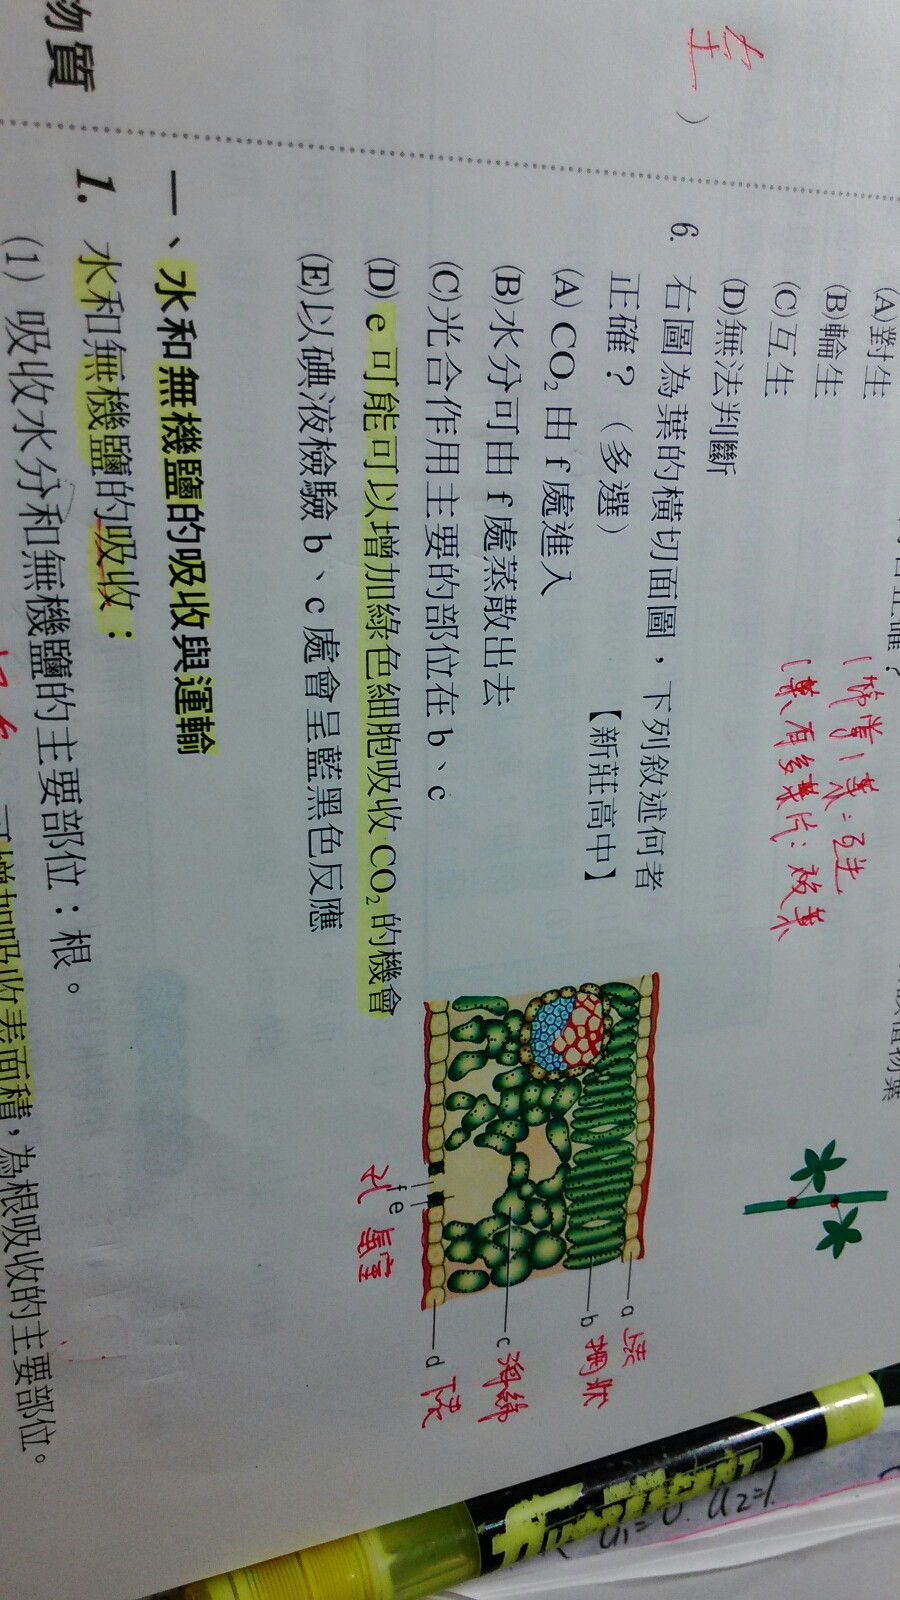 (A)對生
(B)輪生
(C)互生
(D)無法判斷
6. 右圖為葉的橫切面圖，下列敘述何者
正確？（多選）【新莊高中】
(A) CO₂由 f 處進入
(B)水分可由 f 處蒸散出去
(C)光合作用主要的部位在 b、c
(D) e 可能可以增加綠色細胞吸收 CO₂的機會
(E)以碘液檢驗 b、c 處會呈藍黑色反應
a
b
c 海綿
d
f
e
孔 氣室
物質
一、水和無機鹽的吸收與運輸
1. 水和無機鹽的吸收：
(1) 吸收水分和無機鹽的主要部位：根。
可增加吸收表面積，為根吸收的主要部位。